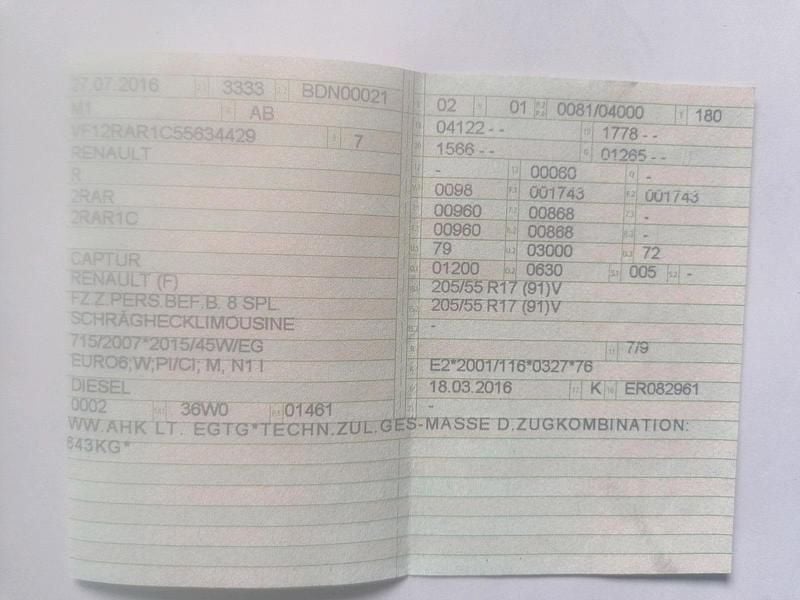 27.07.2016 3333 BDN00021
M1 AB
VF12RAR1C55634429 7
RENAULT
R
2RAR
2RAR1C
CAPTUR
RENAULT (F)
FZ.Z.PERS.BEF.B. 8 SPL.
SCHRÄGHECKLIMOUSINE
715/2007*2015/45W/EG
EURO6;W;PI/CI; M, N1 I
DIESEL
0002 36W0 01461
02 01 0081/04000 180
04122 - - 1778 - -
1566 - - 01265 - -
- 00060 -
0098 001743 001743
00960 00868 -
00960 00868 -
79 03000 72
01200 0630 005 -
205/55 R17 (91)V
205/55 R17 (91)V
-
7/9
E2*2001/116*0327*76
18.03.2016 K ER082961
-
WW.AHK LT. EGTG*TECHN.ZUL.GES-MASSE D.ZUGKOMBINATION:
643KG*